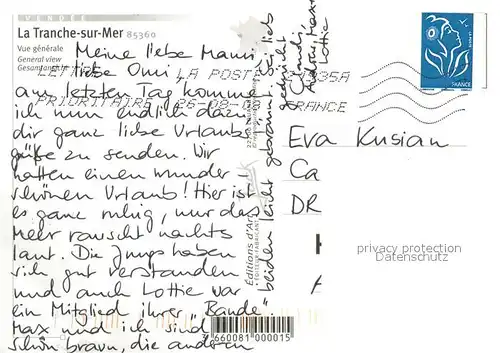 VENDÉE
La Tranche-sur-Mer 85360
Vue générale
General view
Gesamtansicht
Meine liebe Mami,
liebe Omi!
LETTRE LA POSTE 1835A
PRIORITAIRE 26-08-08 FRANCE
am letzten Tag komme
ich nun endlich dazu
dir ganz liebe Urlaubs-
grüße zu senden. Wir
hatten einen wunder-
schönen Urlaub! Hier ist
es ganz ruhig, nur das
Meer rauscht nachts
laut. Die Jungs haben
sich gut verstanden
und auch Lottie war
ein Mitglied ihrer "Bande".
Max und ich sind
schön braun, die anderen
beiden leicht gebräunt.
Max
Lottie
Éditions d'Art
ÉDITEUR-FABRICANT
3 660081 000015
LA POSTE
FRANCE
Eva Kusian
Ca
DR
privacy protection
Datenschutz